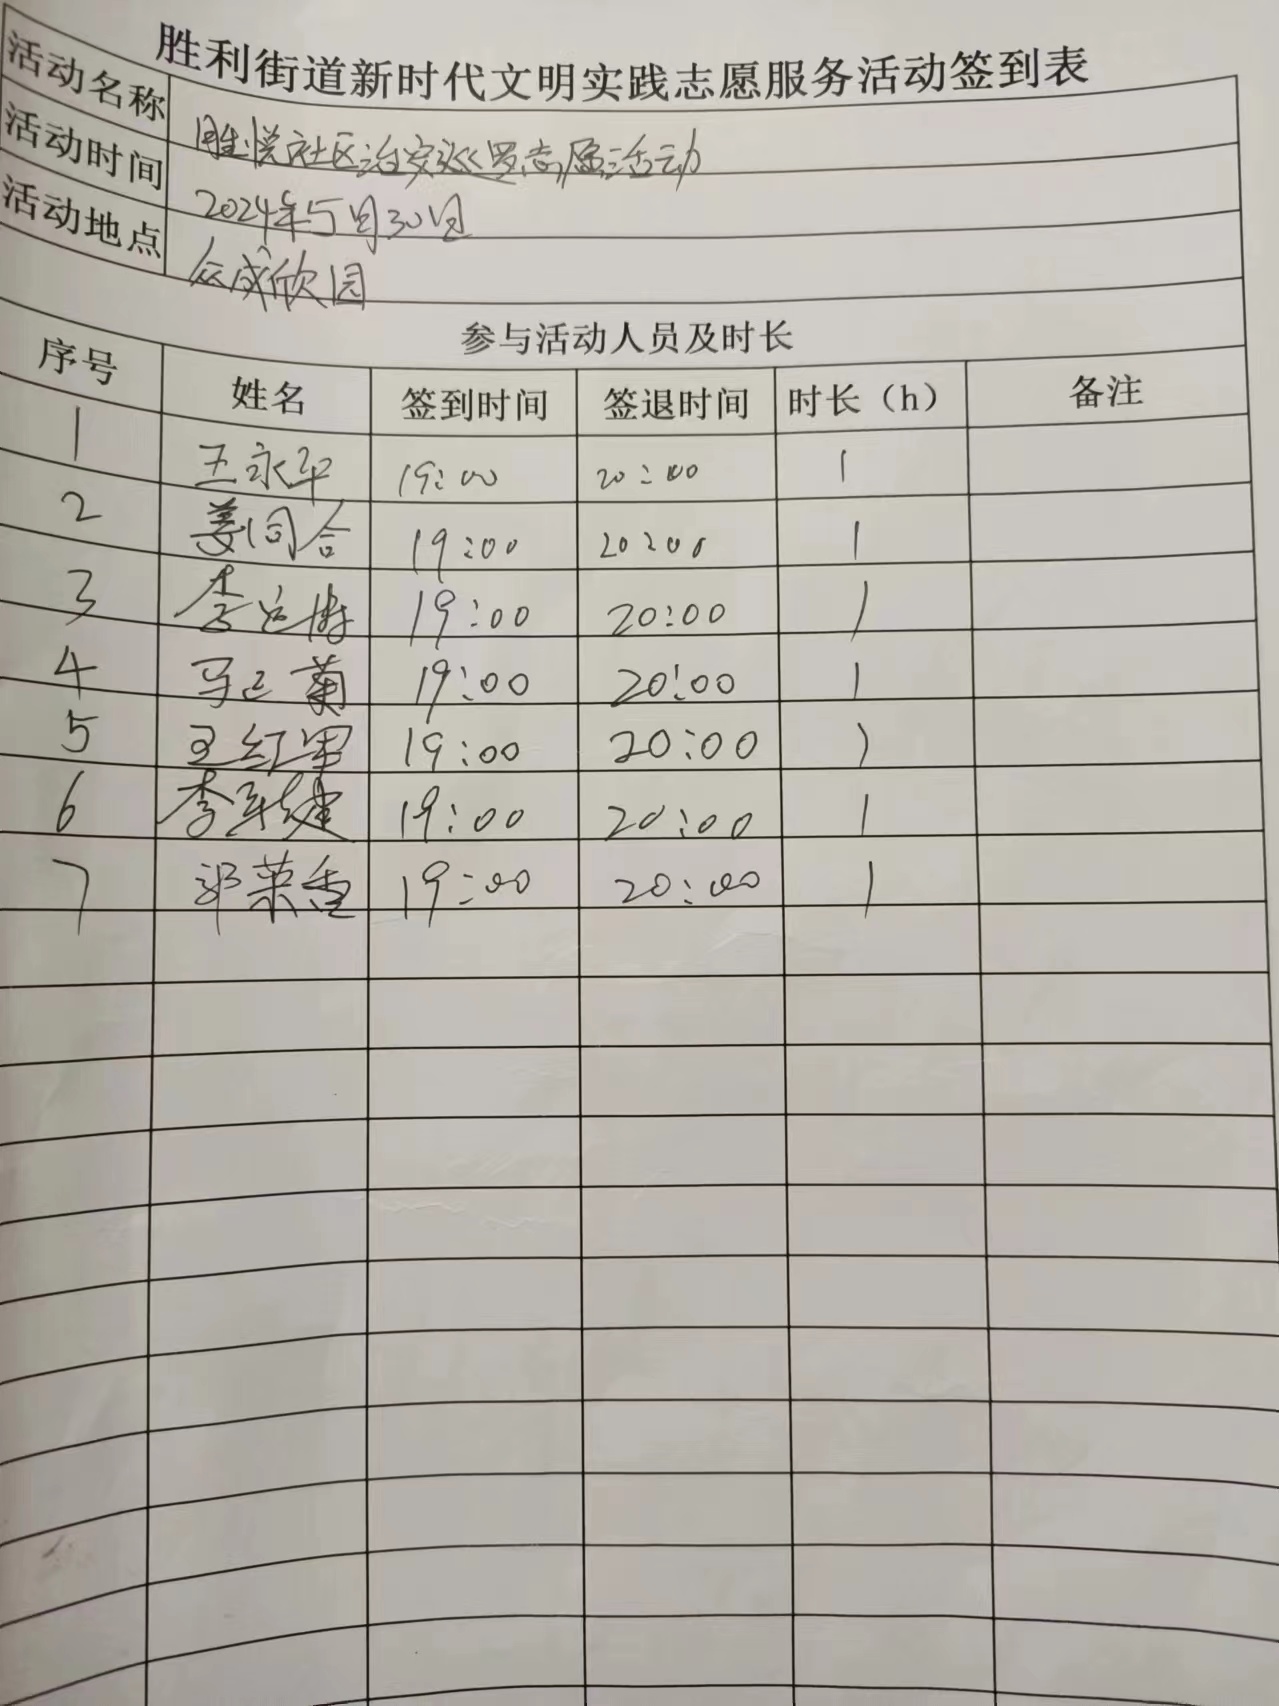 胜利街道新时代文明实践志愿服务活动签到表
活动名称 胜悦社区治安巡逻志愿活动
活动时间 2024年5月30日
活动地点 众成欣园
参与活动人员及时长
序号 姓名 签到时间 签退时间 时长（h） 备注
1 王永平 19:00 20:00 1
2 姜同合 19:00 20:00 1
3 李 19:00 20:00 1
4 马 菊 19:00 20:00 1
5 王红军 19:00 20:00 1
6 李 建 19:00 20:00 1
7 郭荣香 19:00 20:00 1